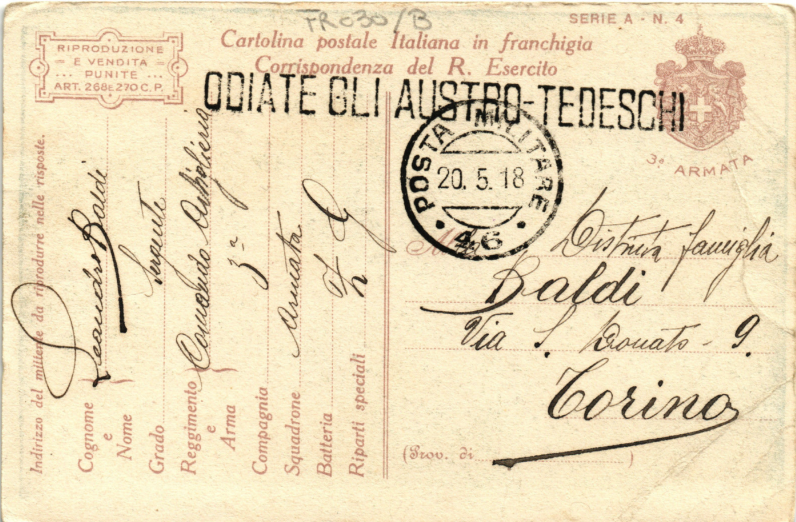 TR030/B
SERIE A - N. 4
RIPRODUZIONE
E VENDITA
... PUNITE ...
ART. 268 E 270 C. P.
Cartolina postale Italiana in franchigia
Corrispondenza del R. Esercito
ODIATE GLI AUSTRO-TEDESCHI
3ª ARMATA
POSTA MILITARE
20. 5. 18
46
Distinta famiglia
Baldi
Via S. Donato - 9.
Torino
(Prov. di )
Indirizzo del mittente da riprodurre nelle risposte.
Cognome e Nome Leandro Baldi
Grado Sergente
Reggimento e Arma Comando Artiglieria
Compagnia 3ª
Squadrone Armata
Batteria
Riparti speciali